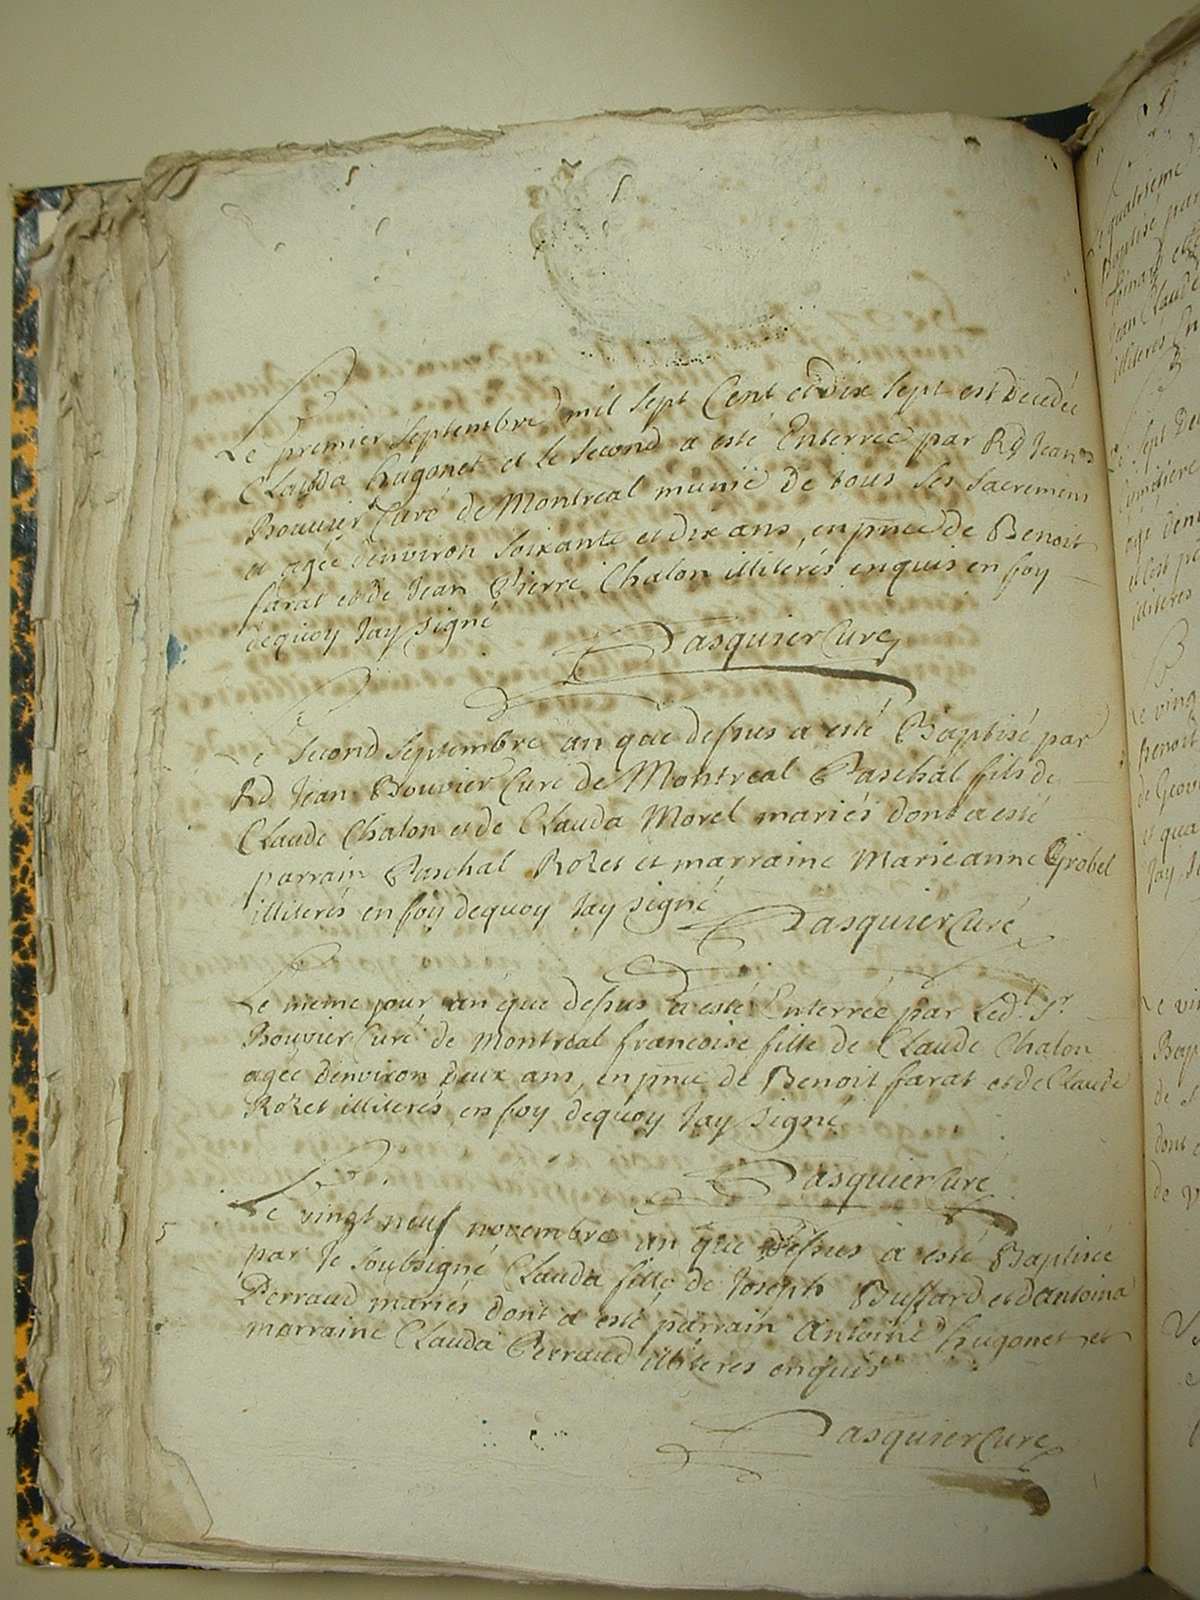 Le premier septembre mil sept Cent et dix sept est decedée
Clauda hugonet et le second a esté Enterrée par Rd Jean
Bouvier Curé de Montreal munie de tous ses sacremens
et agée denviron soixante et dix ans, en pnce de Benoit
farat et de Jean Pierre Chalon illiterés enquis en foy
dequoy Jay signé
Pasquier Curé
Le second septembre an que dessus a esté Baptisé par
Rd Jean Bouvier Curé de Montreal Paschal fils de
Claude Chalon et de Clauda Morel mariés dont a esté
parrain Paschal Rozet et marraine Marieanne Grobel
illiterés en foy dequoy Jay signé
Pasquier Curé
Le meme jour an que dessus a esté Enterrée par Ledt Sr
Bouvier Curé de Montreal francoise fille de Claude Chalon
agée denviron deux ans, en pnce de Benoit farat et de Claude
Rozet illiterés en foy dequoy Jay signé
Pasquier Curé
Le vingt neuf novembre an que dessus a esté Baptisée
par Je soubsigné Clauda fille de Joseph Buffard et dantoina
Perraud mariés dont a esté parrain Antoine hugonet et
marraine Clauda Perraud illiteres enquis
Pasquier Curé
quatrieme
Baptisé par
Jean Claude
illiterés
sept
Cimetiere
agé
illiterés
Le ving
Benoit
et qua
Jay
Le vin
Bap
de
dont
de